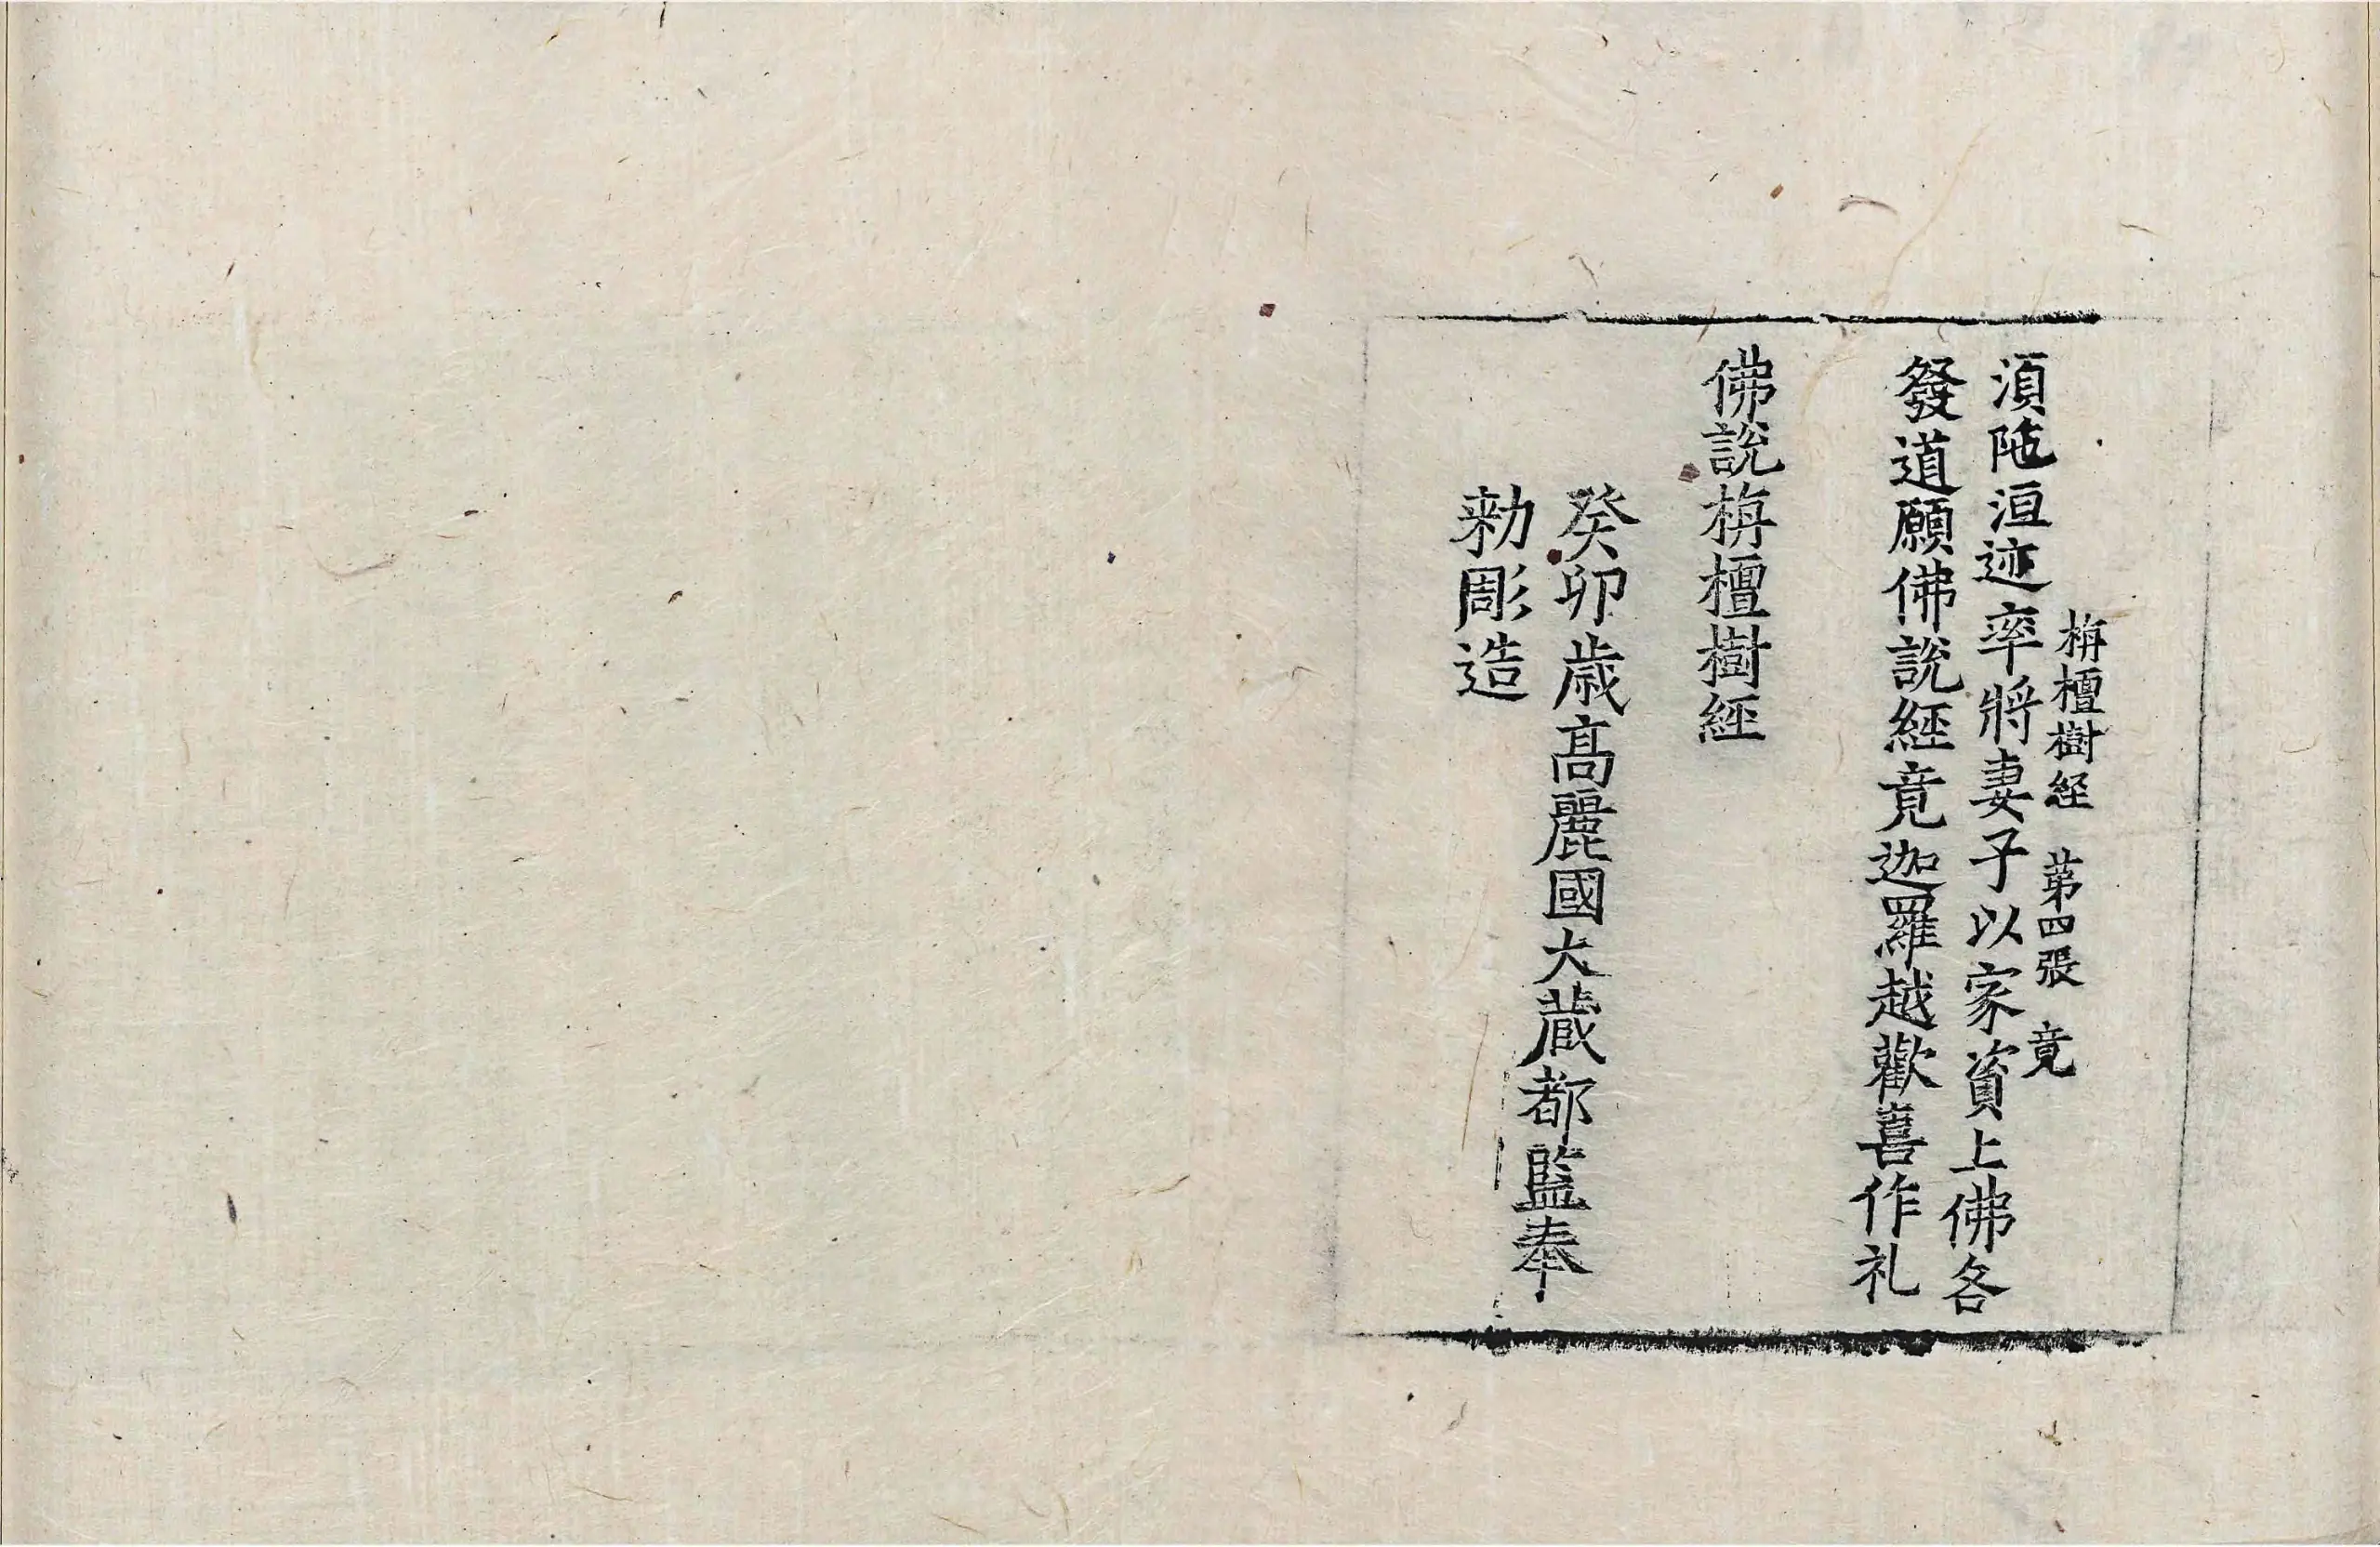 栴檀樹経 第四張 竟
湏陁洹迹率將妻子以家資上佛各
發道願佛說經竟迦羅越歡喜作礼
佛說栴檀樹經
癸卯歳髙麗國大藏都監奉
勑彫造